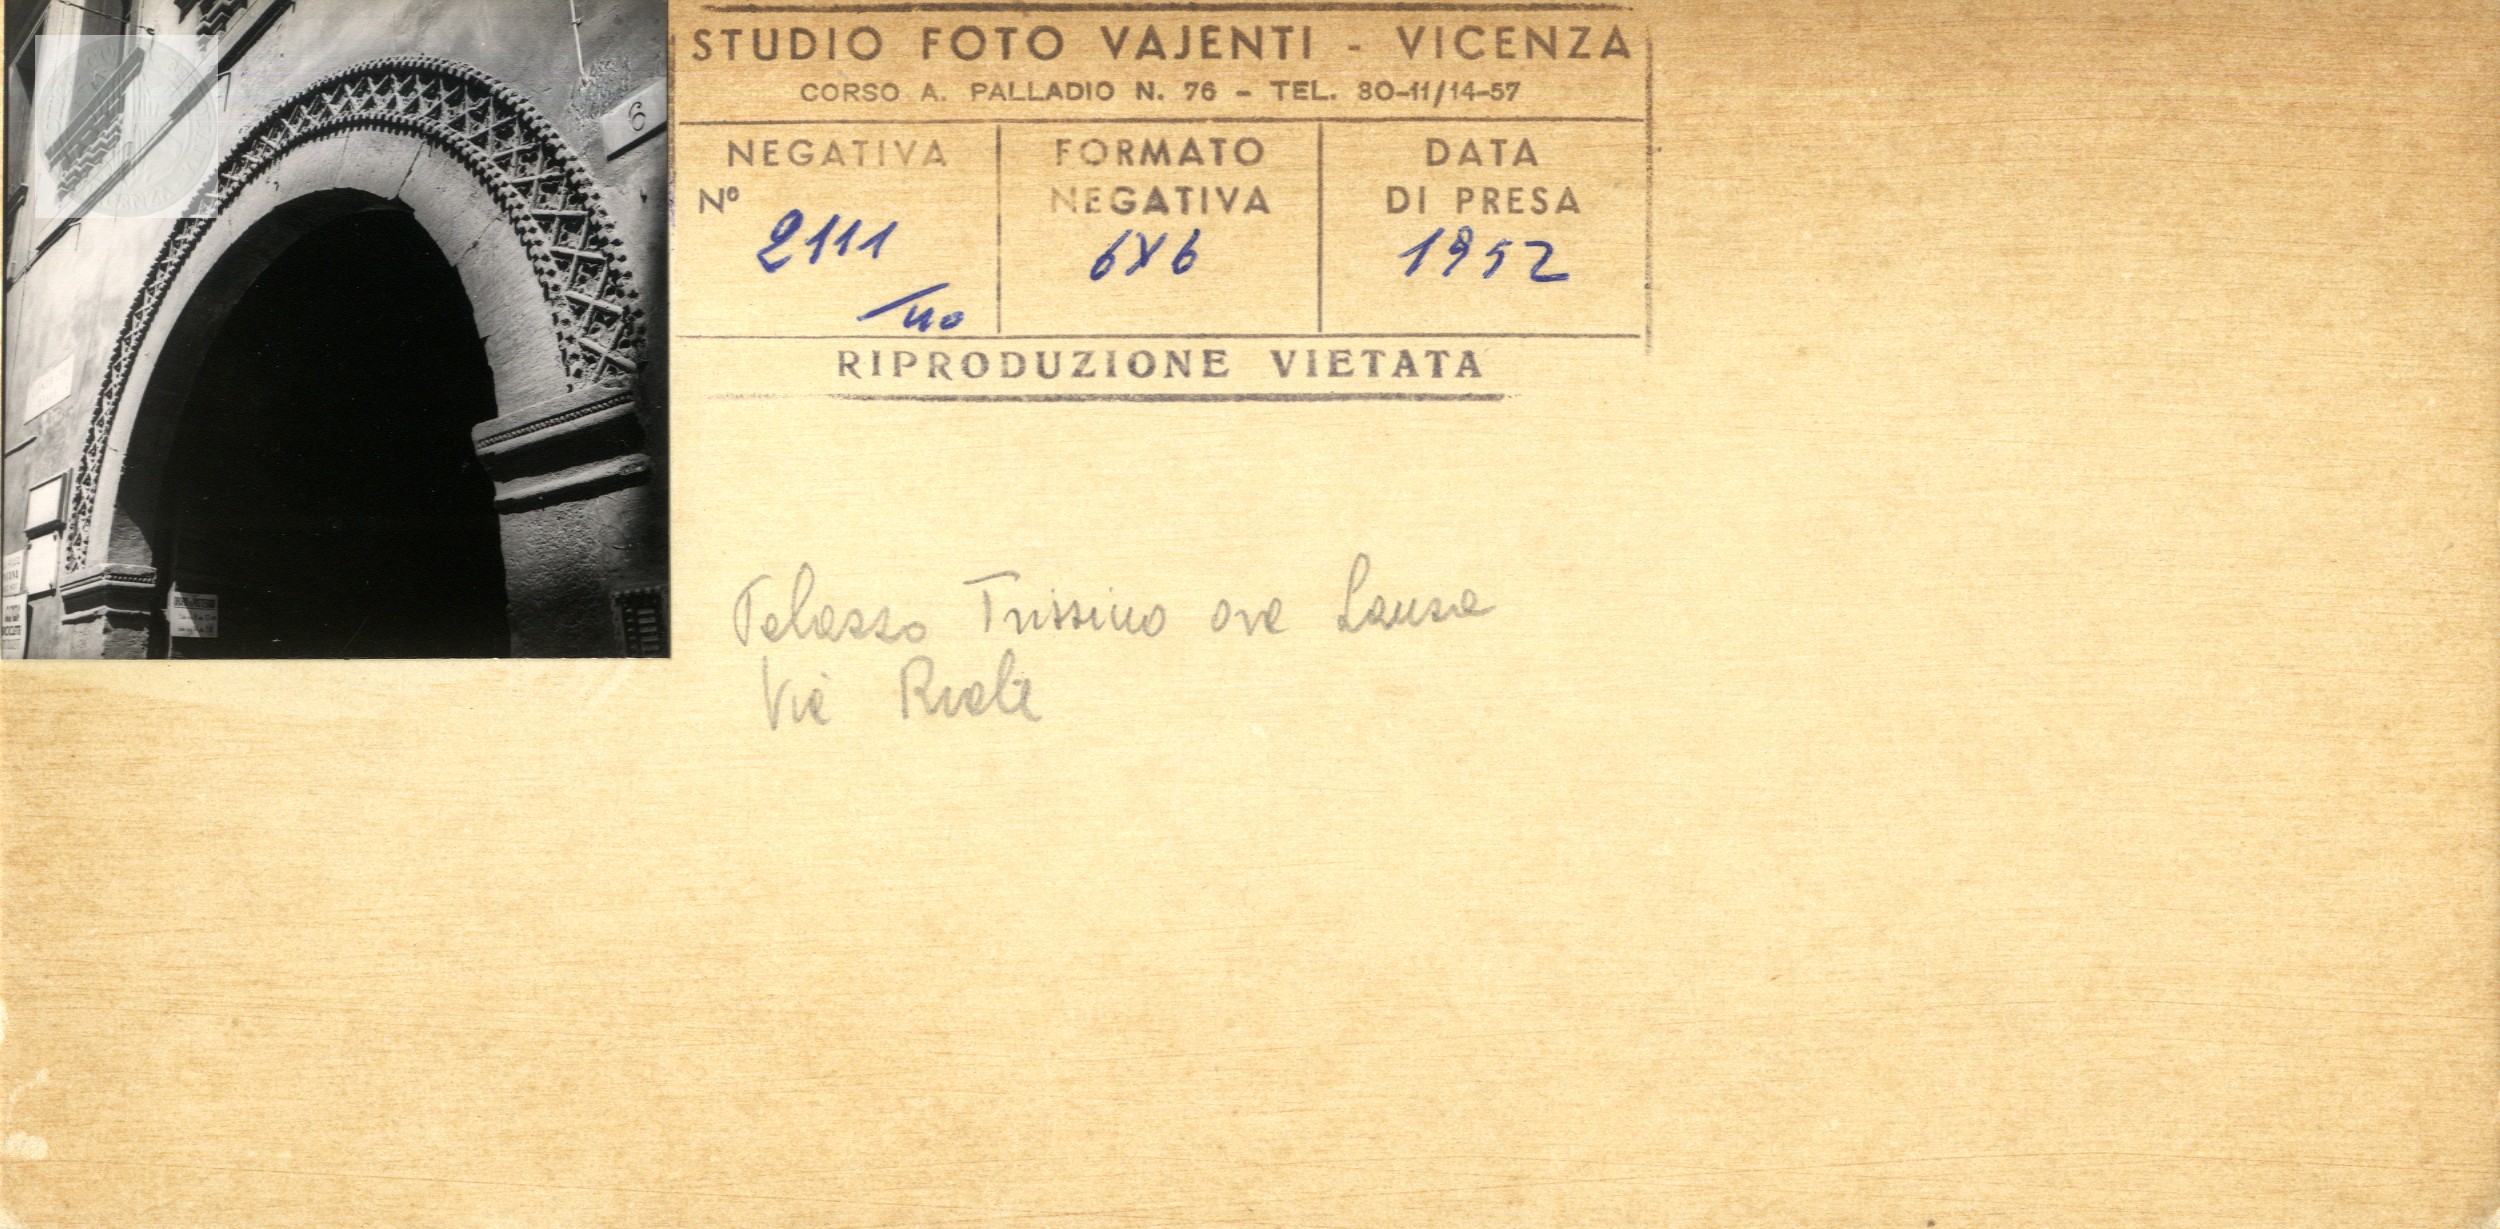 STUDIO FOTO VAJENTI - VICENZA
CORSO A. PALLADIO N. 76 - TEL. 30-11/14-57
NEGATIVA
Nº
2111
/40
FORMATO
NEGATIVA
6x6
DATA
DI PRESA
1952
RIPRODUZIONE VIETATA
Palazzo Trissino ora Lanza
Via Riale
6